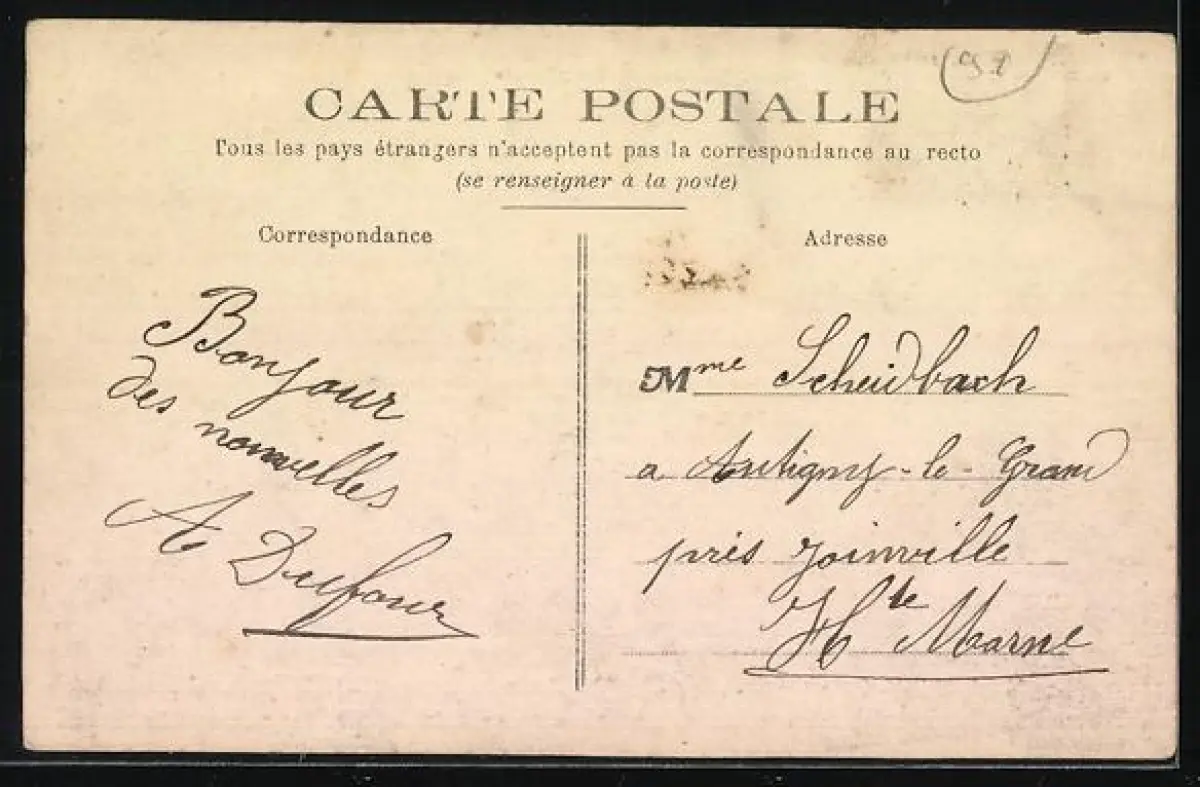 91
CARTE POSTALE
Tous les pays étrangers n'acceptent pas la correspondance au recto
(se renseigner à la poste)
Correspondance
Bonjour
des nouvelles
A Dufour
Adresse
Mme Scheidbach
a Autigny-le-Grand
près Joinville
Hte Marne